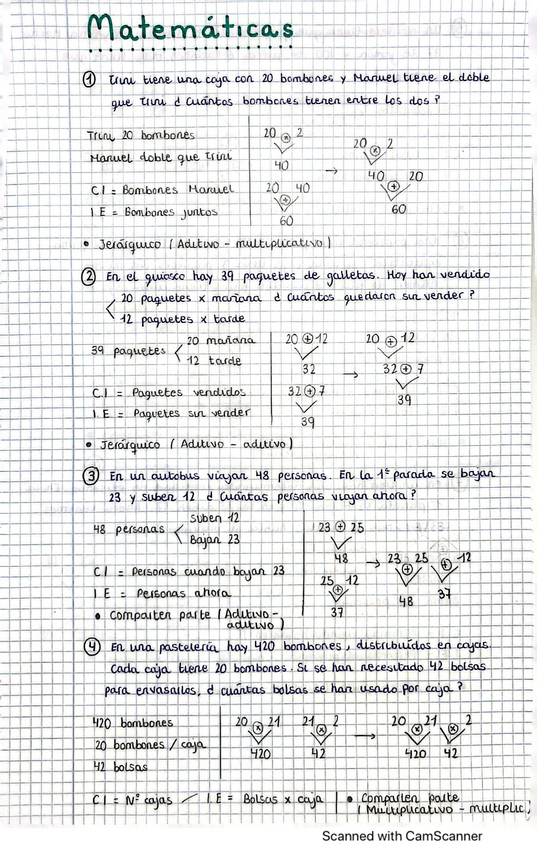 Matemáticas
① Trini tiene una caja con 20 bombones y Manuel tiene el doble
que Trini ¿ Cuántos bombones tienen entre los dos ?
Trini 20 bombones
Manuel doble que Trini
C I = Bombones Manuel
I. E = Bombones juntos
20 ⊗ 2
40
20 ⊕ 40
60
→
20 ⊗ 2
40 ⊕ 20
60
• Jerárquico ( Aditivo - multiplicativo )
② En el quiosco hay 39 paquetes de galletas. Hoy han vendido
20 paquetes x mañana ¿ Cuántos quedaron sin vender ?
12 paquetes x tarde
39 paquetes < 20 mañana
12 tarde
C.I = Paquetes vendidos
I. E = Paquetes sin vender
20 ⊕ 12
32
32 ⊕ 7
39
→
20 ⊕ 12
32 ⊕ 7
39
• Jerárquico ( Aditivo - aditivo )
③ En un autobus viajan 48 personas. En la 1ª parada se bajan
23 y suben 12 ¿ Cuántas personas viajan ahora ?
48 personas < Suben 12
Bajan 23
C I = Personas cuando bajan 23
I E = Personas ahora
• Comparten parte ( Aditivo -
aditivo )
23 ⊕ 25
48
25 ⊕ 12
37
→
23 ⊕ 25 ⊕ 12
48 37
④ En una pastelería hay 420 bombones, distribuidos en cajas.
Cada caja tiene 20 bombones. Si se han necesitado 42 bolsas
para envasarlos, ¿ cuántas bolsas se han usado por caja ?
420 bombones
20 bombones / caja
42 bolsas
20 ⊗ 21
420
21 ⊗ 2
42
→
20 ⊗ 21 ⊗ 2
420 42
C I = Nº cajas / I. E = Bolsas x caja
• Comparten parte
( Multiplicativo - multiplic.)
Scanned with CamScanner